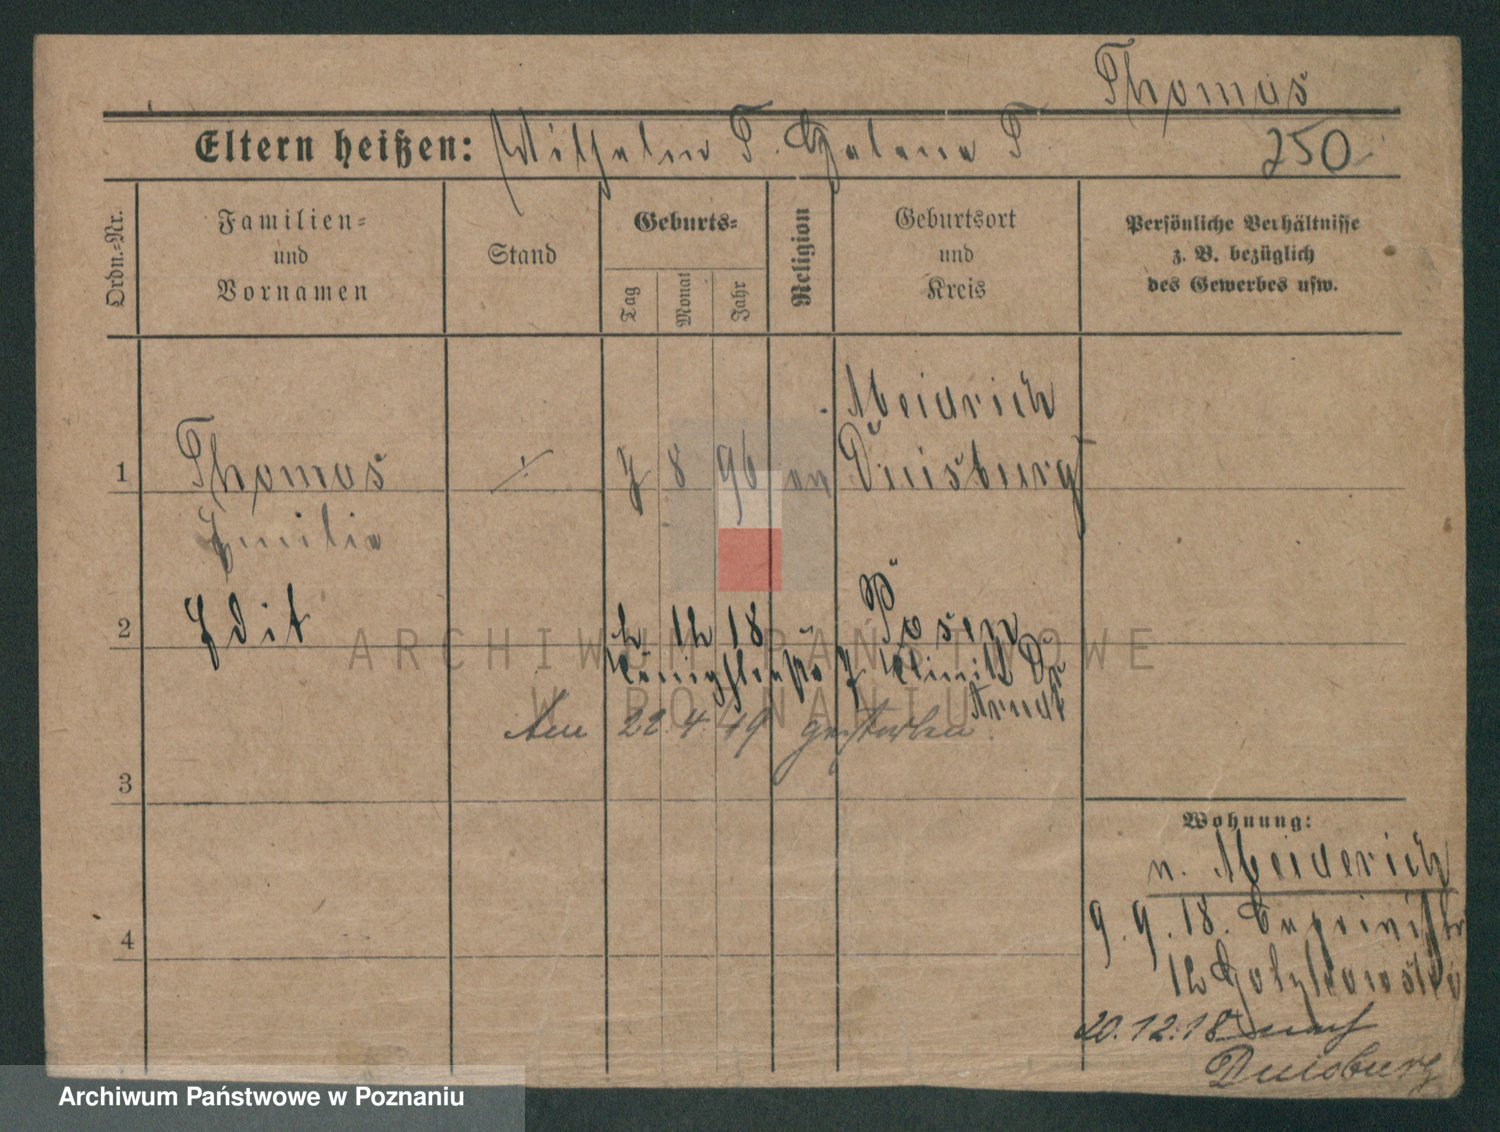 Thomas
Eltern heißen: Wilhelm T. Helene T.
250
Ordn.-Nr.
Familien-
und
Vornamen
Stand
Geburts-
Tag
Monat
Jahr
Religion
Geburtsort
und
Kreis
Persönliche Verhältnisse
z. B. bezüglich
des Gewerbes usw.
Meidrich
1 Thomas ./. 7 8 96 ev Duisburg
Emilie
2 Edit 2 12 18 Posen
Klinik Dr
Am 22.4.19 gestorben.
3
Wohnung:
n. Meiderich
9.9.18.
4
12
20.12.18 nach
Duisburg
ARCHIWUM PAŃSTWOWE
W POZNANIU
Archiwum Państwowe w Poznaniu